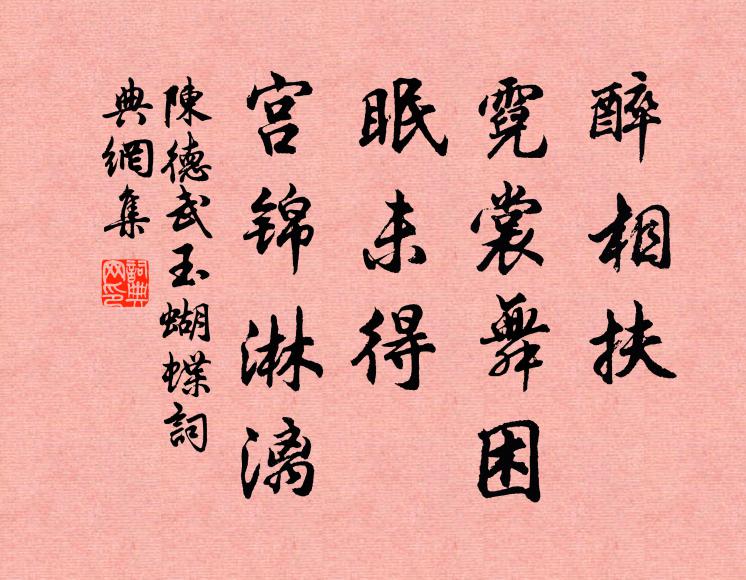 醉相扶
霓裳舞困
眠未得
宫锦淋漓
陳德武玉蝴蝶詞
典網集
詞典
网印